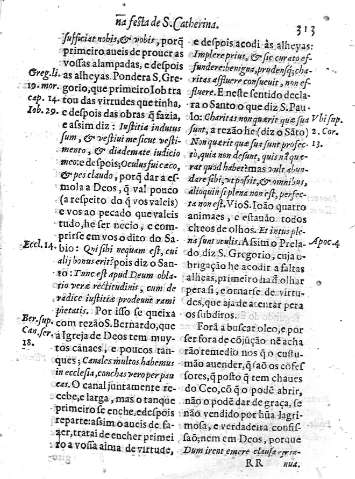 na festa de S. Catherina. 313
sufficiat nobis, & vobis, porq̃
primeiro aueis de prouer as
vossas alampadas, e despois
as alheyas. Pondera S. Gre-
gorio, que primeiro Iob tra
tou das virtudes que tinha,
e despois das obras q̃ fazia,
e assim diz: Iustitia indutus
sum, & vestiui me sicut vesti-
mento, & diademate iudicio
meo: e despois; Oculus fui cæco,
& pes claudo, porq̃ dar a es-
mola a Deos, q̃ val pouco
(a respeito do q̃ vos valeis)
e vos ao pecado que valeis
tudo, he ser necio, e com-
prirse em vos o dito do Sa-
bio: Qui sibi nequam est, cui
alij bonus erit? pois diz o San-
to: Tunc est apud Deum obla-
tio vera rectitudinis, cum de
radice iustitiæ prodeunt rami
pietatis. Por isso se queixa
com rezaõ S. Bernardo, que
a Igreja de Deos tem muy-
tos canaes, e poucos tan-
ques; Canales multos habemus
in ecclesia, conchas vero per pau
cas. O canal juntamente re-
cebe, e larga, mas o tanque
primeiro se enche, e despois
reparte: assim o aueis de fa-
zer, tratai de encher primei
ro a vossa alma de virtude,
Greg. li.
19. mor.
cap. 14.
Iob. 29.
Eccl. 14.
Ber. sup.
Can. ser.
18.
e despois acodi às alheyas:
Implere prius, & sic curato ef-
fundere: benigna, prudensq̃; cha-
ritas affluere consueuit, non ef-
fluere. E neste sentido decla-
ra o Santo o que diz S. Pau-
lo: Charitas non quærit quæ sua
sunt, a rezão he (diz o Sãto)
Non quærit quæ sunt profec-
to, quia non desunt, quis nã que-
rat quod habet? mas vult abun-
dare sibi, vt possit, & omnibus,
alioquin si plena non est, perfec-
ta non est. Vio S. Ioão quatro
animaes, e estauão todos
cheos de olhos: Et intus ple-
na sunt oculis. Assim o Prela-
do diz S. Gregorio, cuja o-
brigação he acodir a faltas
alheas, primeiro ha de olhar
pera si, e ornarse de virtu-
des, que aja de atentar pera
os subditos.
Forã a buscar oleo, e por
ser fora de cõjução nẽ acha
rão remedio nos q̃ o custu-
mão auender, q̃ são os cõfes
sores, q̃ posto q̃ tem chaues
do Ceo, cõ q̃ o podẽ abrir,
não o podẽ dar de graça, se
não vendido por hũa lagri-
mosa, e verdadeira confis-
saõ; nem em Deos, porque
Dum irent emere clausa est ia-
Vbi sup.
2. Cor.
13.
Apoc. 4
RR nua.